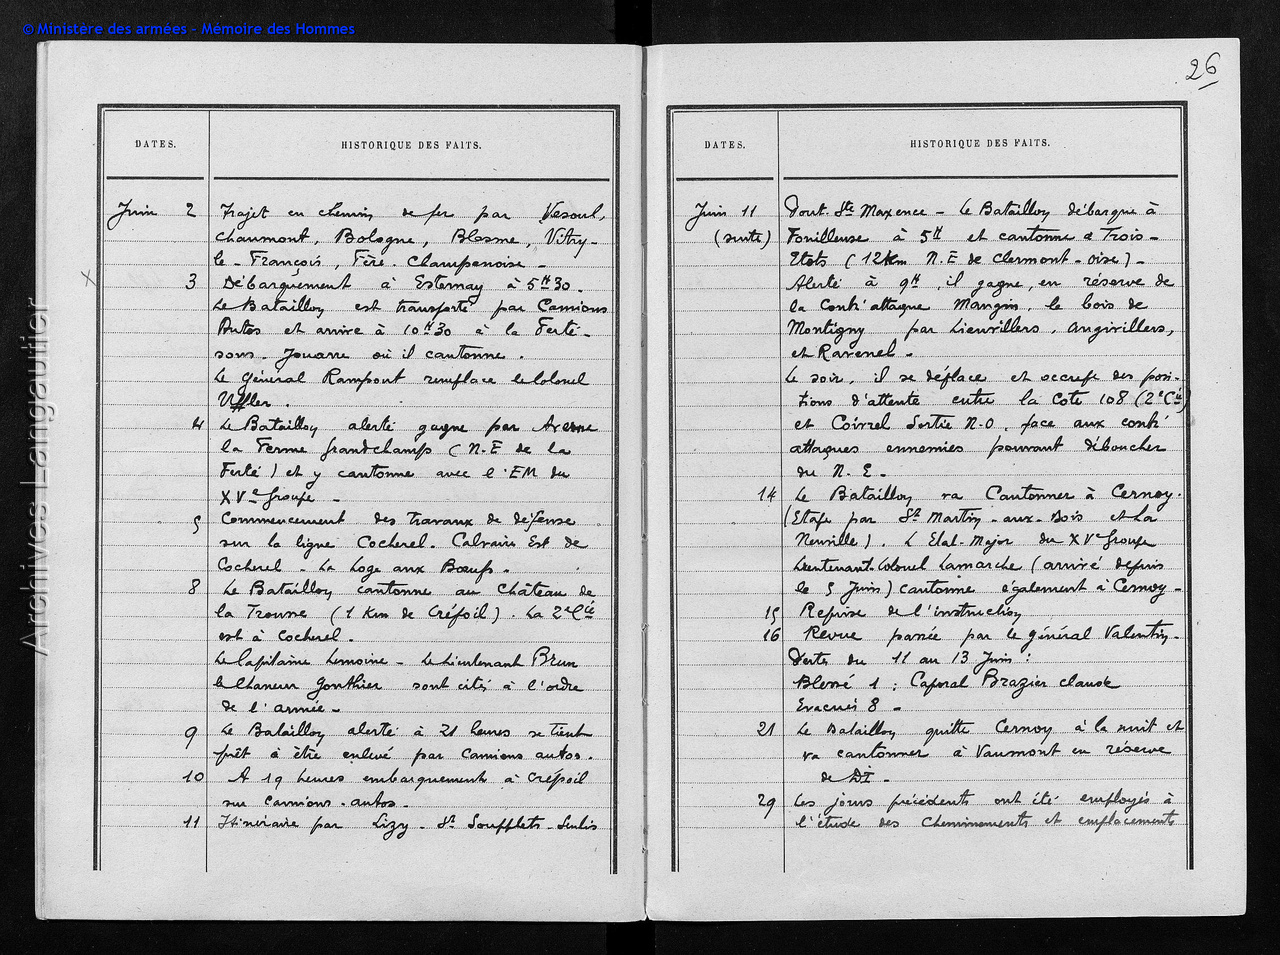 © Ministère des armées - Mémoire des Hommes
Archives Langautier
26
DATES.
HISTORIQUE DES FAITS.
Juin 2 Trajet en chemin de fer par Vesoul,
Chaumont, Bologne, Blesme, Vitry-
le-François, Fère-Champenoise -
X
3 Débarquement à Esternay à 5H30.
Le Bataillon est transporté par Camions
Autos et arrive à 10H30 à la Ferté-
sous-Jouarre où il cantonne.
Le général Rampont remplace le Colonel
4 Le Bataillon alerté gagne par
la Ferme Grandchamps (N-E de la
Ferté) et y cantonne avec l'EM du
XVe Groupe -
5 Commencement des travaux de défense
sur la ligne Cocherel. Calvaire Est de
Cocherel - La Loge aux Bœufs -
8 Le Bataillon cantonne au Château de
la Trousse (1 Km de Crépoil). La 2e Cie
est à Cocherel.
Le Capitaine Lemoine - Le Lieutenant Brun
le Chasseur Gonthier sont cités à l'ordre
de l'armée -
9 Le Bataillon alerté à 21 heures se tient
prêt à être enlevé par Camions autos.
10 A 19 heures embarquement à Crépoil
sur Camions-autos -
11 Itinéraire par Lizy - St Soupplets - Senlis
DATES.
HISTORIQUE DES FAITS.
Juin 11 Pont-Ste Maxence - Le Bataillon débarque à
(suite) Fouilleuse à 5H et cantonne à Trois-
Etots (12Km N.E de Clermont-Oise) -
Alerté à 9H, il gagne, en réserve de
la Contr'attaque Mangin, le bois de
Montigny par Lieuvillers, Angivillers,
et Ravenel -
Le soir, il se déplace et occupe des posi-
tions d'attente entre la Cote 108 (2e Cie)
et Coivrel Sortie N-O, face aux contr'
attaques ennemies pouvant déboucher
du N-E -
14 Le Bataillon va Cantonner à Cernoy.
(Etape par St Martin-aux-Bois et La
Neuville). L'Etat-Major du XVe Groupe
Lieutenant-Colonel Lamarche (arrivé depuis
le 5 Juin) cantonne également à Cernoy -
15 Reprise de l'instruction
16 Revue passée par le général Valentin -
Pertes du 11 au 13 Juin :
Blessé 1 : Caporal Brazier Claude
Evacués 8 -
21 Le Bataillon quitte Cernoy à la nuit et
va cantonner à Vaumont en réserve
de DI -
29 Les jours précédents ont été employés à
l'étude des Cheminements et emplacements